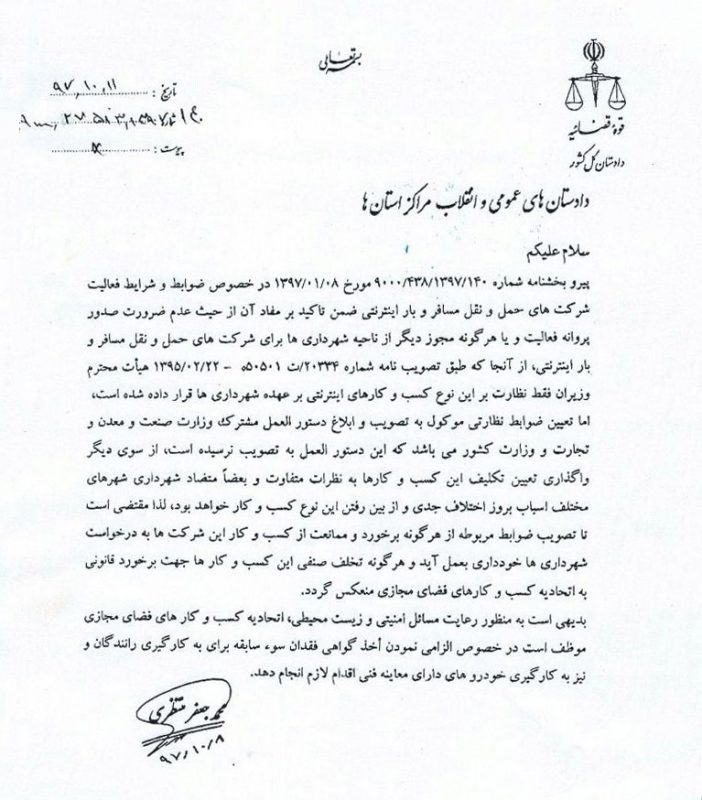 بسمه تعالی
قوه قضائیه
دادستان کل کشور
تاریخ : ۹۷٫۱۰٫۱۱
شماره
پیوست :
دادستان های عمومی و انقلاب مراکز استان ها
سلام علیکم
پیرو بخشنامه شماره ۹۰۰۰/۴۳۸/۱۳۹۷/۱۴۰ مورخ ۱۳۹۷/۰۱/۰۸ در خصوص ضوابط و شرایط فعالیت
شرکت های حمل و نقل مسافر و بار اینترنتی ضمن تاکید بر مفاد آن از حیث عدم ضرورت صدور
پروانه فعالیت و یا هرگونه مجوز دیگر از ناحیه شهرداری ها برای شرکت های حمل و نقل مسافر و
بار اینترنتی، از آنجا که طبق تصویب نامه شماره ۲۰۳۳۴/ت ۵۰۵۰۱ه – ۱۳۹۵/۰۲/۲۲ هیأت محترم
وزیران فقط نظارت بر این نوع کسب و کارهای اینترنتی بر عهده شهرداری ها قرار داده شده است،
اما تعیین ضوابط نظارتی موکول به تصویب و ابلاغ دستور العمل مشترک وزارت صنعت و معدن و
تجارت و وزارت کشور می باشد که این دستور العمل به تصویب نرسیده است، از سوی دیگر
واگذاری تعیین تکلیف این کسب و کارها به نظرات متفاوت و بعضاً متضاد شهرداری شهرهای
مختلف اسباب بروز اختلاف جدی و از بین رفتن این نوع کسب و کار خواهد بود، لذا مقتضی است
تا تصویب ضوابط مربوطه از هرگونه برخورد و ممانعت از کسب و کار این شرکت ها به درخواست
شهرداری ها خودداری بعمل آید و هرگونه تخلف صنفی این کسب و کار ها جهت برخورد قانونی
به اتحادیه کسب و کارهای فضای مجازی منعکس گردد.
بدیهی است به منظور رعایت مسائل امنیتی و زیست محیطی، اتحادیه کسب و کار های فضای مجازی
موظف است در خصوص الزامی نمودن أخذ گواهی فقدان سوء سابقه برای به کارگیری رانندگان و
نیز به کارگیری خودرو های دارای معاینه فنی اقدام لازم انجام دهد.
محمد جعفر منتظری
۹۷٫۱۰٫۸